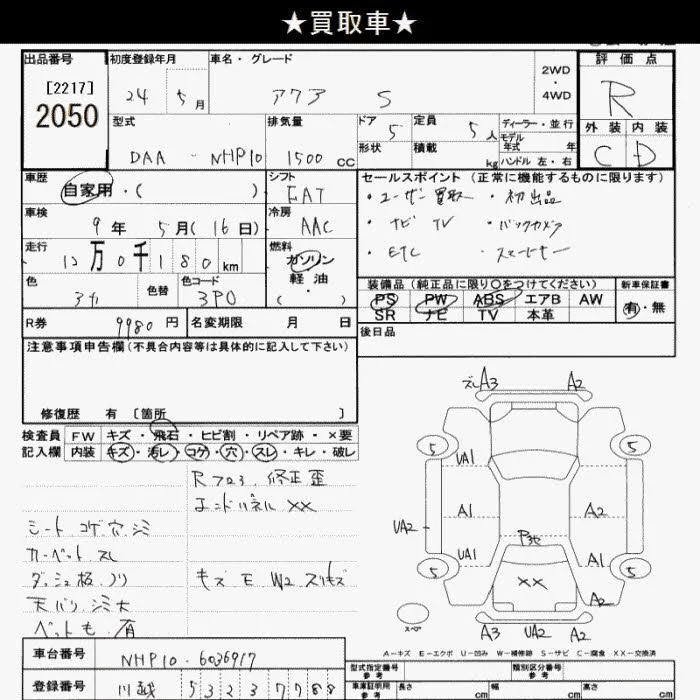 ★買取車★
出品番号 初度登録年月 車名・グレード 2WD・4WD 評価点
[2217]
2050
24 5月 アクア S R
型式 排気量 ドア 5 定員 5人 ディーラー・並行 外装 内装
モデル年式 年
DAA - NHP10 1500cc 形状 積載 kg ハンドル 左・右 C D
車歴 シフト セールスポイント (正常に機能するものに限ります)
自家用・( ) FAT ・ユーザー買取 ・初出品
車検 冷房 ・ナビ TV ・バックカメラ
9年 5月(16日) AAC ・ETC ・スマートキー
走行 燃料
12万0千180km ガソリン
軽・油
( )
色 色替 色コード 装備品 (純正品に限り○をつけてください) 新車保証書
アカ 3P0 PS PW ABS エアB AW 有・無
SR ナビ TV 本革
R券 9980円 名変期限 月 日 後日品
注意事項申告欄 (不具合内容等は具体的に記入して下さい)
修復歴 有 [箇所 ]
検査員 FW キズ・飛石・ヒビ割・リペア跡・×要
記入欄 内装 キズ・汚レ・コゲ・穴・スレ・キレ・破レ
Rフロア 修正歪
エンドパネル ××
シート コゲ穴シミ
カーペット スレ
ダッシュ板 ノリ キズ E W2 スリキズ
天バリ シミ大
ペット毛 有
車台番号 NHP10-6036917
登録番号 川越 5 3 2 3 7 7 8 8
ズレA3 A2
5 5
UA1
A1 A2
UA2
UA1 A1
5 5
×× A2
スペア
A3 UA2 A2
A-キズ E-エクボ U-凹み W-補修跡 S-サビ C-腐食 XX-交換済
型式指定番号 参考 類別区分番号 参考
車庫証明用 参考 長さ cm 幅 cm 高さ cm